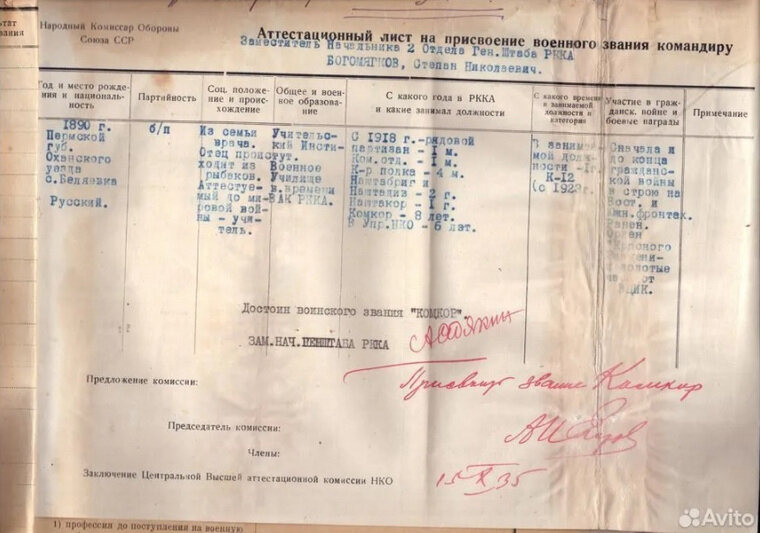 Народный Комиссар Обороны
Союза ССР
Аттестационный лист на присвоение военного звания командиру
Заместитель Начальника 2 Отдела Ген.Штаба РККА
БОГОМЯГКОВ, Степан Николаевич.
Год и место рожде-
ния и националь-
ность
Партийность
Соц. положе-
ние и проис-
хождение
Общее и воен-
ное образова-
ние
С какого года в РККА
и какие занимал должности
С какого времени
в занимаемой
должности и
категория
Участие в граж-
данск. войне и
боевые награды
Примечание
1890 г.
Пермской
губ.
Оханского
уезда
с.Беляевка
Русский.
б/п
Из семьи
врача.
Отец проис-
ходит из
рыбаков.
Аттестуе-
мый до ми-
ровой вой-
ны - учи-
тель.
Учительс-
кий Инсти-
тут.
Военное
Училище
в.времени
ВАК РККА.
С 1918 г.-рядовой
партизан - 1 м.
Ком.отд. - 1 м.
К-р полка - 4 м.
Наштабриг и
Наштадив - 2 г.
Наштакор - 1 г.
Комкор - 8 лет.
В Упр.НКО - 6 лет.
В занимае-
мой долж-
ности -1г.
К-12
(с 1923г.
Сначала и
до конца
гражданс-
кой войны
в строю на
Вост. и
Южн.фронтах.
Ранен.
Орден
"Красного
Знамени-
и золотые
от
ВЦИК.
Достоин воинского звания "КОМКОР".
ЗАМ.НАЧ.ГЕНШТАБА РККА
Предложение комиссии:
Присвоить звание Комкор
Председатель комиссии:
Члены:
Заключение Центральной Высшей аттестационной комиссии НКО
15 X 35
1) профессия до поступления на военную
Avito